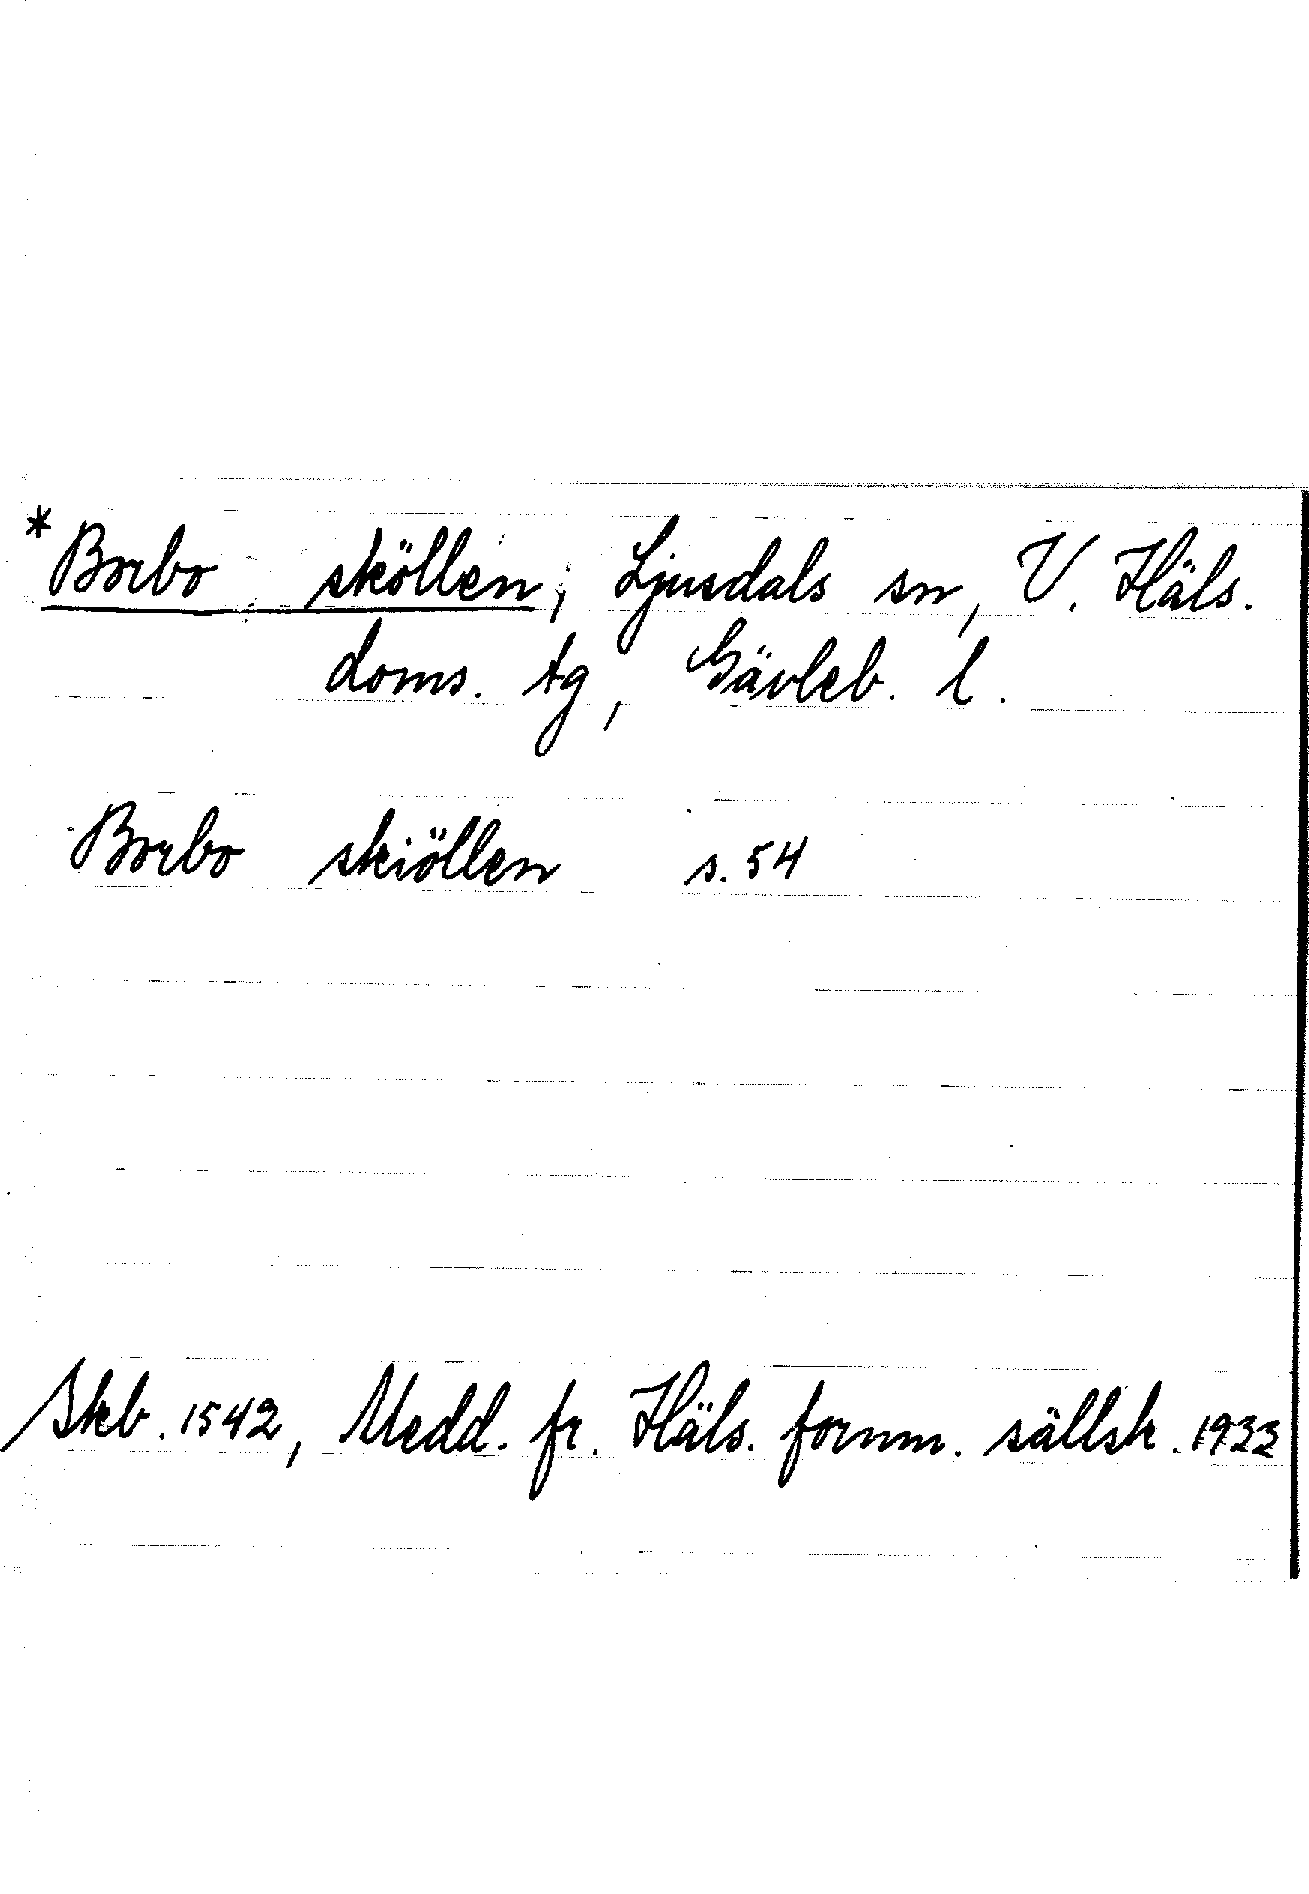 *Borbo sköllen, Ljusdals sn, V. Häls.
doms. tg, Gävleb. l.
Borbo skiöllen s. 54
Skb. 1542, Medd. fr. Häls. fornm. sällsk. 1933